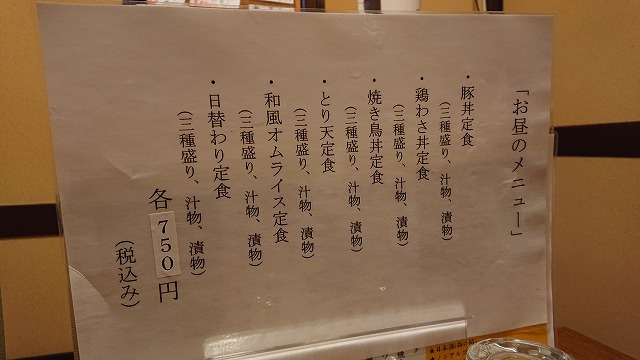 「お昼のメニュー」
・豚丼定食
(三種盛り、汁物、漬物)
・鶏わさ丼定食
(三種盛り、汁物、漬物)
・焼き鳥丼定食
(三種盛り、汁物、漬物)
・とり天定食
(三種盛り、汁物、漬物)
・和風オムライス定食
(三種盛り、汁物、漬物)
・日替わり定食
(三種盛り、汁物、漬物)
各750円
(税込み)